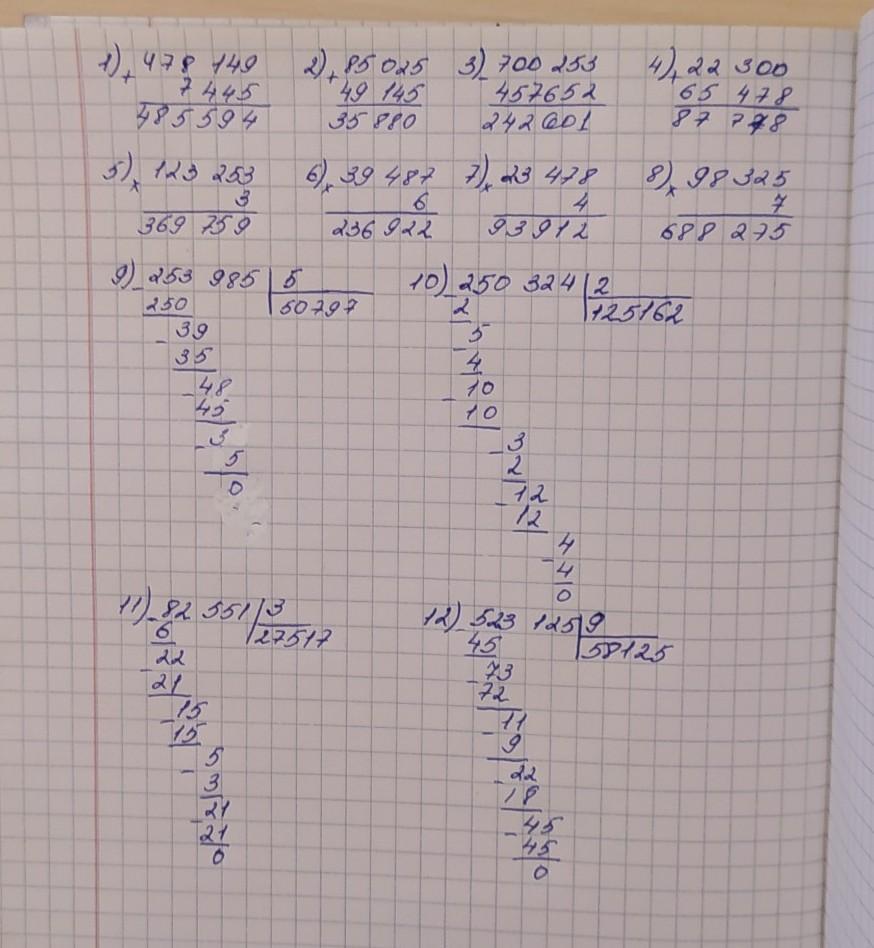 1) + 478 149 2) + 85 025 3) - 700 253 4) + 22 300
7 445 49 145 457652 65 478
485 594 35 880 242 601 87 778
5) x 123 253 6) x 39 487 7) x 23 478 8) x 98 325
3 6 4 7
369 759 236 922 93912 688 275
9) - 253 985 | 5 10) - 250 324 | 2
250 50797 2 125162
- 39 - 5
35 4
- 48 - 10
45 10
- 3 - 3
5 2
0 - 12
12
- 4
4
0
11) - 82 551 | 3 12) - 523 125 | 9
6 27517 45 58125
- 22 - 73
21 72
- 15 - 11
15 9
- 5 - 22
3 18
- 21 - 45
21 45
0 0